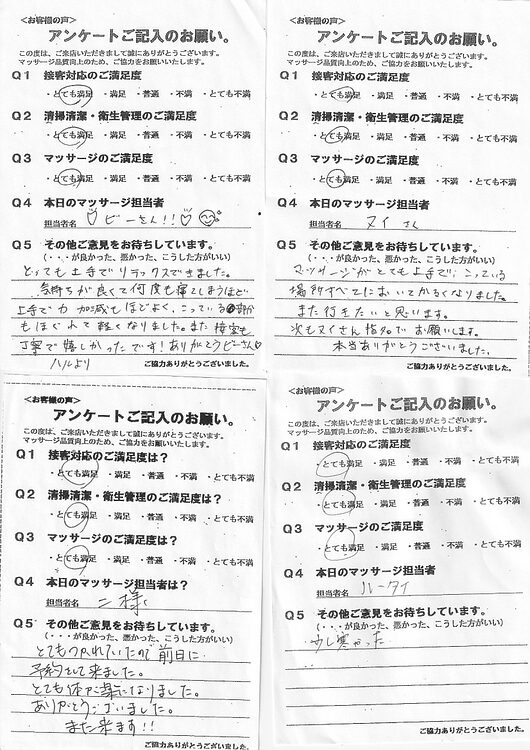 ＜お客様の声＞
アンケートご記入のお願い。
この度は、ご来店いただきまして誠にありがとうございます。
マッサージ品質向上のため、ご協力をお願いいたします。
Q1 接客対応のご満足度
・とても満足 ・満足 ・普通 ・不満 ・とても不満
Q2 清掃清潔・衛生管理のご満足度
・とても満足 ・満足 ・普通 ・不満 ・とても不満
Q3 マッサージのご満足度
・とても満足 ・満足 ・普通 ・不満 ・とても不満
Q4 本日のマッサージ担当者
担当者名 ビーさん!!
Q5 その他ご意見をお待ちしています。
(・・・が良かった、悪かった、こうした方がいい)
とっても上手でリラックスできました。
気持ちが良くて何度も寝てしまうほど
上手で力加減もほどよく、こっている部分
もほぐれて軽くなりました。また接客も
丁寧で嬉しかったです！ありがとうビーさん♡
ハルより
ご協力ありがとうございました。
＜お客様の声＞
アンケートご記入のお願い。
この度は、ご来店いただきまして誠にありがとうございます。
マッサージ品質向上のため、ご協力をお願いいたします。
Q1 接客対応のご満足度
・とても満足 ・満足 ・普通 ・不満 ・とても不満
Q2 清掃清潔・衛生管理のご満足度
・とても満足 ・満足 ・普通 ・不満 ・とても不満
Q3 マッサージのご満足度
・とても満足 ・満足 ・普通 ・不満 ・とても不満
Q4 本日のマッサージ担当者
担当者名 ヌイさん
Q5 その他ご意見をお待ちしています。
(・・・が良かった、悪かった、こうした方がいい)
マッサージがとても上手で、こっている
場所すべてにおいてかるくなりました。
また行きたいと思います。
次もヌイさん指名でお願いします。
本当ありがとうございました。
ご協力ありがとうございました。
＜お客様の声＞
アンケートご記入のお願い。
この度は、ご来店いただきまして誠にありがとうございます。
マッサージ品質向上のため、ご協力をお願いいたします。
Q1 接客対応のご満足度は？
・とても満足 ・満足 ・普通 ・不満 ・とても不満
Q2 清掃清潔・衛生管理のご満足度は？
・とても満足 ・満足 ・普通 ・不満 ・とても不満
Q3 マッサージのご満足度は？
・とても満足 ・満足 ・普通 ・不満 ・とても不満
Q4 本日のマッサージ担当者は？
担当者名 ニ様
Q5 その他ご意見をお待ちしています。
(・・・が良かった、悪かった、こうした方がいい)
とてもつかれていたので前日に
予約をして来ました。
とても体が楽になりました。
ありがとうございました。
また来ます!!
ご協力ありがとうございました。
＜お客様の声＞
アンケートご記入のお願い。
この度は、ご来店いただきまして誠にありがとうございます。
マッサージ品質向上のため、ご協力をお願いいたします。
Q1 接客対応のご満足度
・とても満足 ・満足 ・普通 ・不満 ・とても不満
Q2 清掃清潔・衛生管理のご満足度
・とても満足 ・満足 ・普通 ・不満 ・とても不満
Q3 マッサージのご満足度
・とても満足 ・満足 ・普通 ・不満 ・とても不満
Q4 本日のマッサージ担当者
担当者名 ルータイ
Q5 その他ご意見をお待ちしています。
(・・・が良かった、悪かった、こうした方がいい)
少し寒かった
ご協力ありがとうございました。